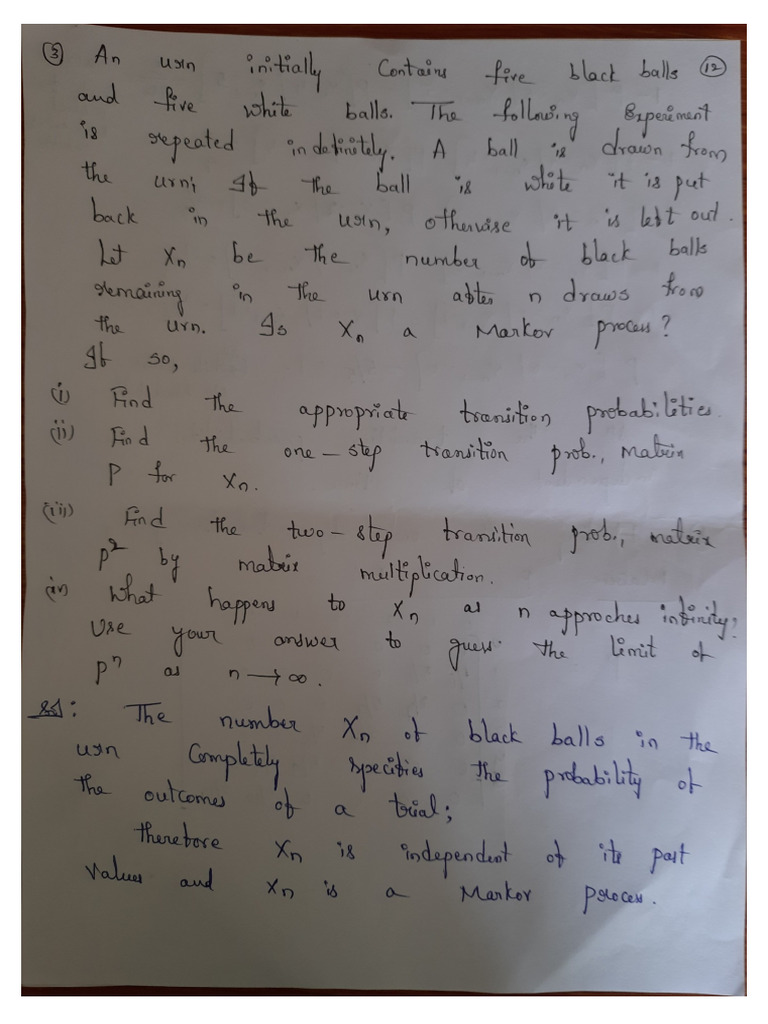 ③ An urn initially Contains five black balls ⑫
and five white balls. The following Experiment
is repeated indefinitely. A ball is drawn from
the urn; If the ball is white it is put
back in the urn, otherwise it is left out.
Let Xn be the number of black balls
remaining in the urn after n draws from
the urn. Is Xn a Markov process?
If so,
(i) Find the appropriate transition probabilities.
(ii) Find the one-step transition prob., matrix
P for Xn.
(iii) Find the two-step transition prob., matrix
P² by matrix multiplication.
(iv) What happens to Xn as n approches infinity?
Use your answer to guess the limit of
Pⁿ as n → ∞.
Sol: The number Xn of black balls in the
urn Completely specifies the probability of
the outcomes of a trial;
therefore Xn is independent of its past
values and Xn is a Markov process.